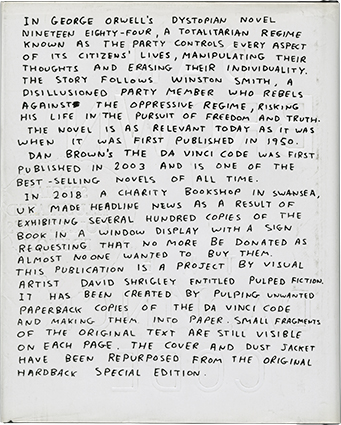 IN GEORGE ORWELL'S DYSTOPIAN NOVEL
NINETEEN EIGHTY-FOUR, A TOTALITARIAN REGIME
KNOWN AS THE PARTY CONTROLS EVERY ASPECT
OF ITS CITIZENS' LIVES, MANIPULATING THEIR
THOUGHTS AND ERASING THEIR INDIVIDUALITY.
THE STORY FOLLOWS WINSTON SMITH, A
DISILLUSIONED PARTY MEMBER WHO REBELS
AGAINST THE OPPRESSIVE REGIME, RISKING
HIS LIFE IN THE PURSUIT OF FREEDOM AND TRUTH.
THE NOVEL IS AS RELEVANT TODAY AS IT WAS
WHEN IT WAS FIRST PUBLISHED IN 1950.
DAN BROWN'S THE DA VINCI CODE WAS FIRST
PUBLISHED IN 2003 AND IS ONE OF THE
BEST-SELLING NOVELS OF ALL TIME.
IN 2018 A CHARITY BOOKSHOP IN SWANSEA,
UK MADE HEADLINE NEWS AS A RESULT OF
EXHIBITING SEVERAL HUNDRED COPIES OF THE
BOOK IN A WINDOW DISPLAY WITH A SIGN
REQUESTING THAT NO MORE BE DONATED AS
ALMOST NO ONE WANTED TO BUY THEM.
THIS PUBLICATION IS A PROJECT BY VISUAL
ARTIST DAVID SHRIGLEY ENTITLED PULPED FICTION.
IT HAS BEEN CREATED BY PULPING UNWANTED
PAPERBACK COPIES OF THE DA VINCI CODE
AND MAKING THEM INTO PAPER. SMALL FRAGMENTS
OF THE ORIGINAL TEXT ARE STILL VISIBLE
ON EACH PAGE. THE COVER AND DUST JACKET
HAVE BEEN REPURPOSED FROM THE ORIGINAL
HARDBACK SPECIAL EDITION.